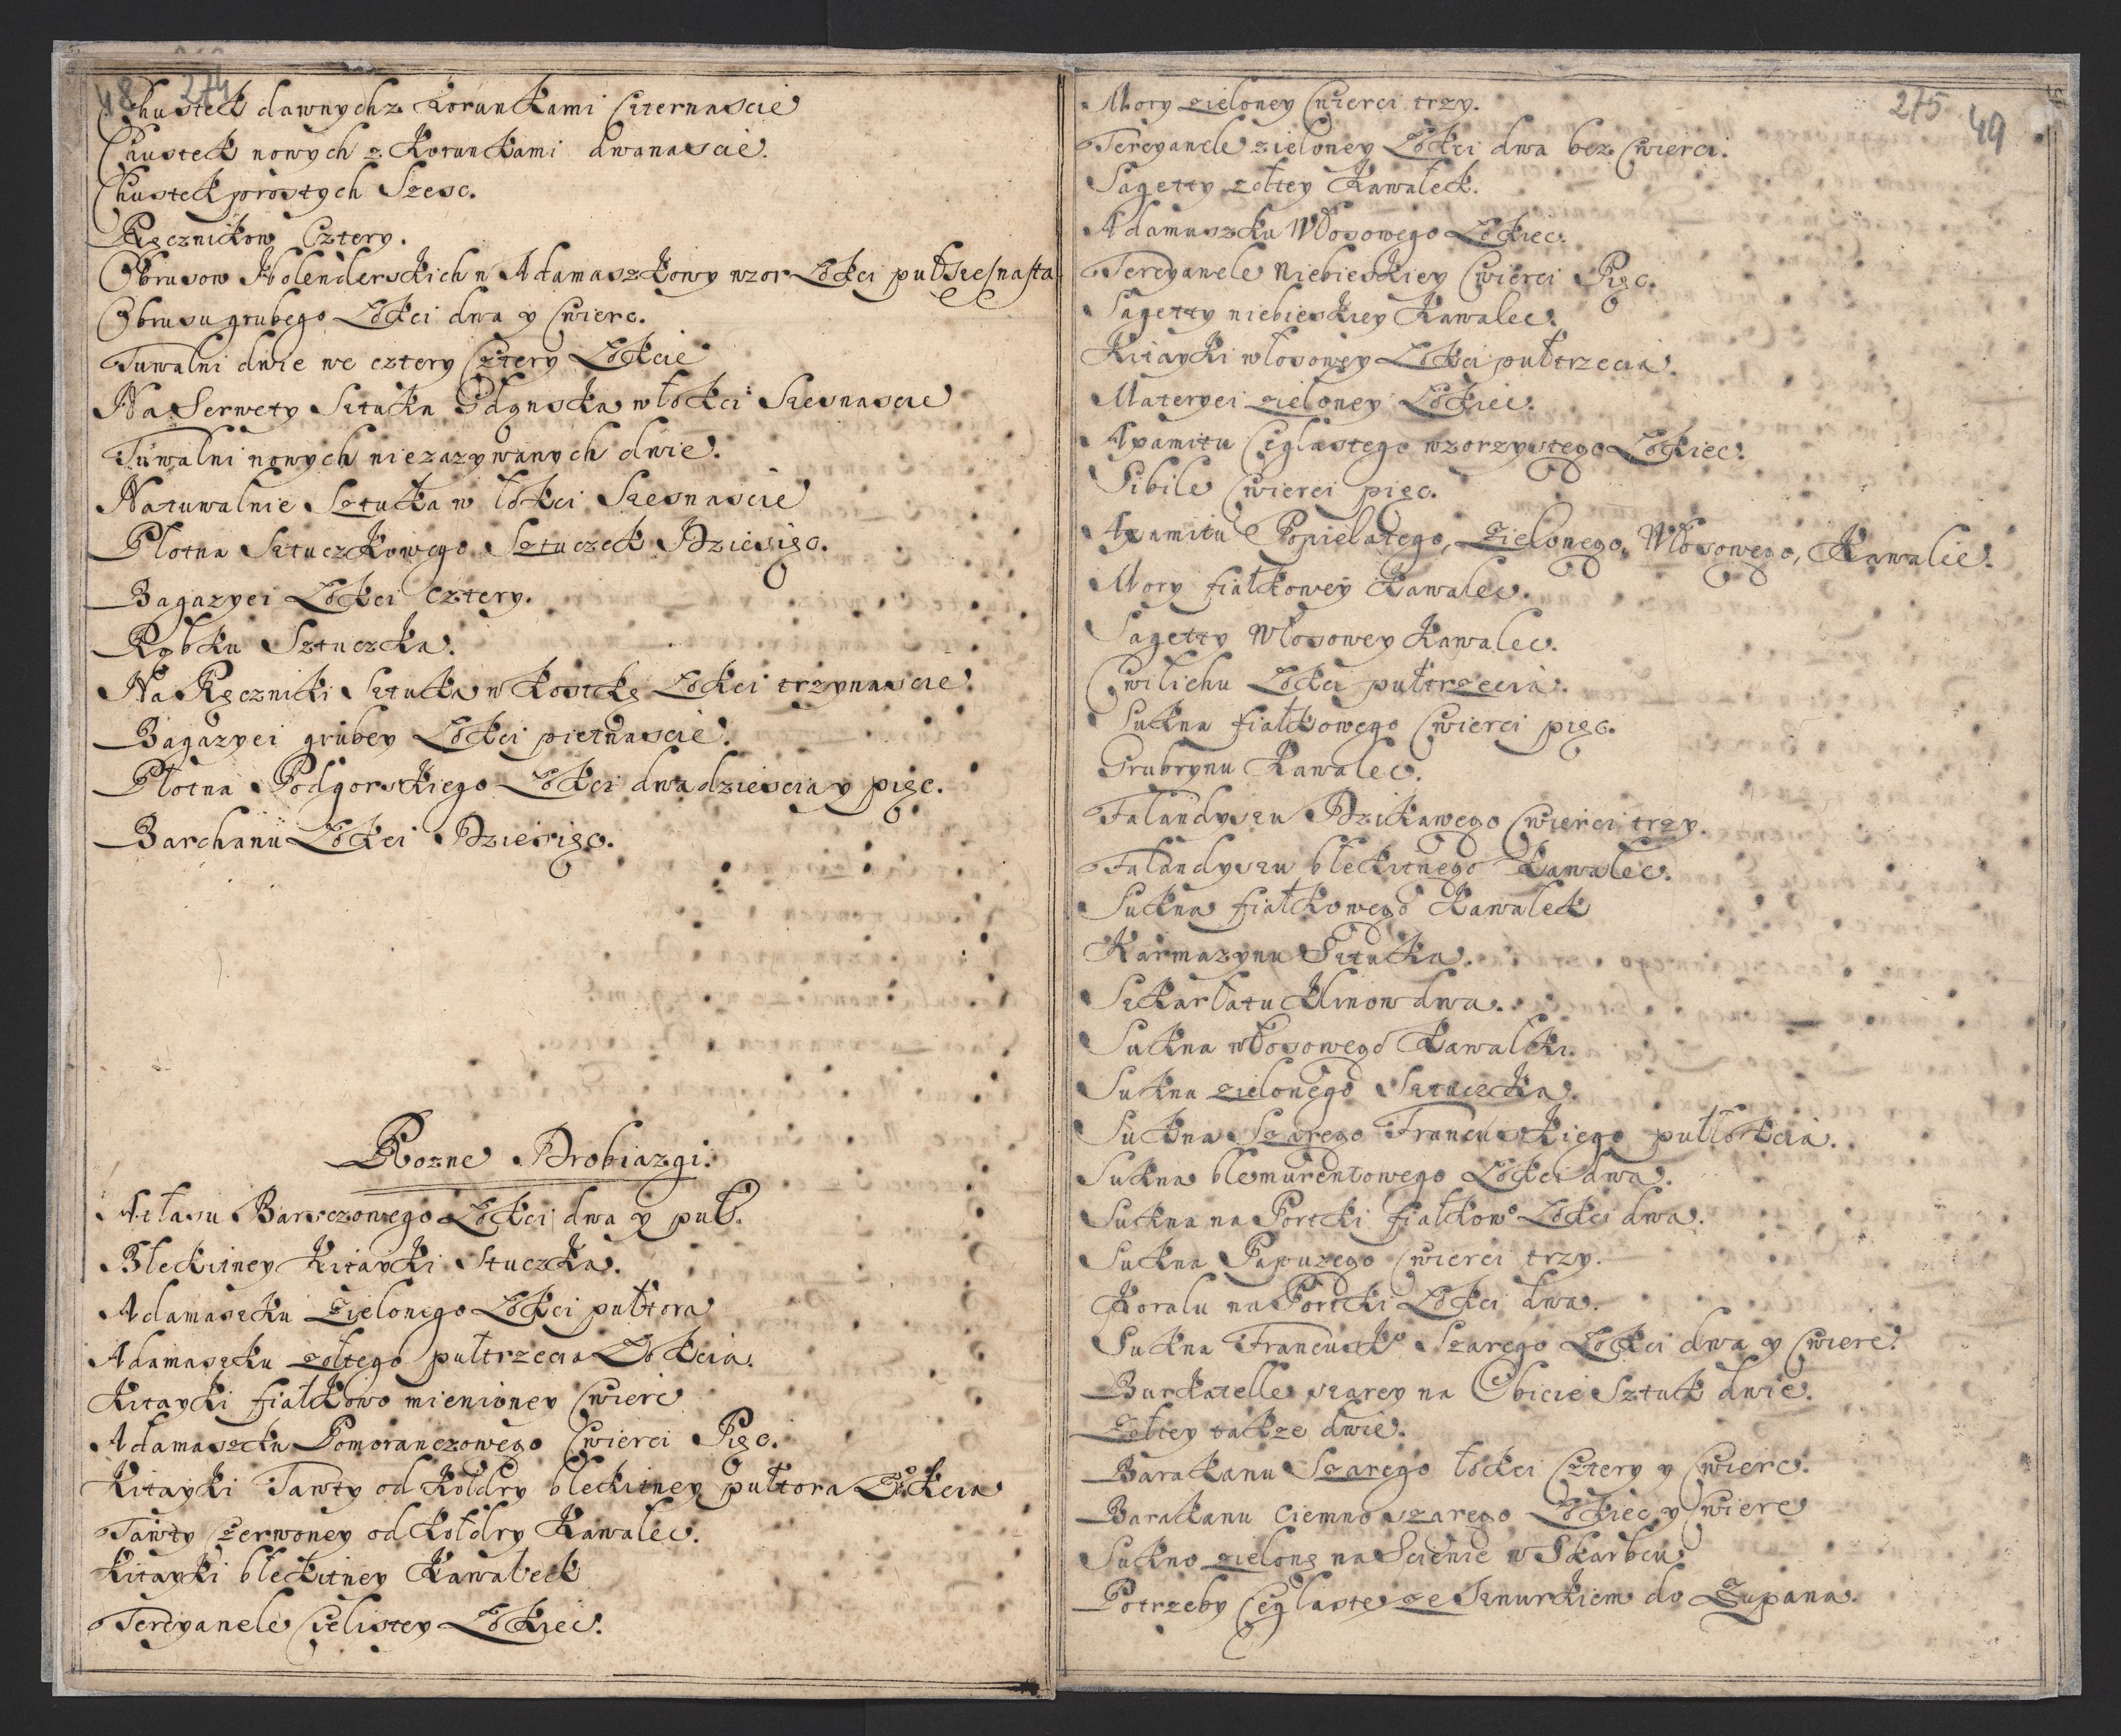 48 274
Chustek dawnych z Korunkami Czternascie
Chustek nowych z Korunkami dwanascie.
Chustek prostych Szesc.
Ręcznikow Cztery.
Obrusow Holenderskich w Adamaszkowy wzor Łokci pułszesnasta
Obrusu grubego Łokci dwa y Cwierc.
Tuwalni dwie we cztery Cztery Łokcie
Na Serwety Sztuka Gdanska w łokci Szesnascie
Tuwalni nowych niezazywanych dwie.
Na tuwalnie Sztuka w łokci Szesnascie
Płotna Sztuczkowego Sztuczek Dziesięc.
Bagazyei Łokci Cztery.
Rąbku Sztuczka.
Na Ręczniki Sztuka w Kostkę Łokci trzynascie.
Bagazyei grubey Łokci pietnascie.
Płotna Podgorskiego Łokci dwadziescia y pięc.
Barchanu Łokci Dziesięc.
Rozne Drobiazgi.
Atłasu Barsczowego Łokci dwa y puł.
Błekitney Kitayki Stuczka.
Adamaszku Zielonego Łokci pułtora
Adamaszku zołtego pułtrzecia Łokcia.
Kitayki fiałkowo mienioney Cwierc
Adamaszku Pomoranczowego Cwierci Pięc.
Kitayki Tawty od Kołdry błekitney pułtora Łokcia
Tawty Czerwoney od Kołdry Kawalec.
Kitayki błekitney Kawałeck
Tercyanele Cielistey Łokiec.
275 49
Mory zieloney Cwierci trzy.
Tercyanele zieloney Łokci dwa bez Cwierci.
Sagetty zołtey Kawałeck.
Adamuszku Włosowego Łokiec.
Tercyanele Niebieskiey Cwierci Pięc.
Sagetty niebieskiey Kawalec.
Kitayki włosowey Łokci pułtrzecia.
Materyei zieloney Łokiec.
Axamitu Ceglastego wzorzystego Łokiec.
Sibile Cwierci pięc.
Axamitu Popielatego, Zielonego, Włosowego, Kawalce.
Mory fiałkowey Kawalec.
Sagetty Włosowey Kawalec.
Cwilichu Łokci pułtrzecia.
Sukna fiałkowego Cwierci pięc.
Grubrynu Kawalec.
Falandyszu Dzikawego Cwierci trzy.
Falandyszu błekitnego Kawalec.
Sukna fiałkowego Kawałeck
Karmazynu Sztuka.
Szkarłatu Klinow dwa.
Sukna włosowego Kawalki.
Sukna zielonego Sztuczka.
Sukna Szarego Francuskiego pułłokcia.
Sukna blemurentowego Łokci dwa.
Sukna na Portki fiałkow° Łokci dwa.
Sukna Papuzego Cwierci trzy.
Koralu na Portki Łokci dwa.
Sukna Francusk° Szarego Łokci dwa y Cwierc.
Burkatelle szarey na Obicie Sztuk dwie.
Zołtey takze dwie.
Barakanu Szarego łokci Cztery y Cwierc.
Barakanu Ciemno szarego Łokiec y Cwierc
Sukno zielone na Scienie w Skarbcu
Potrzeby Ceglaste ze Sznurkiem do Żupana.